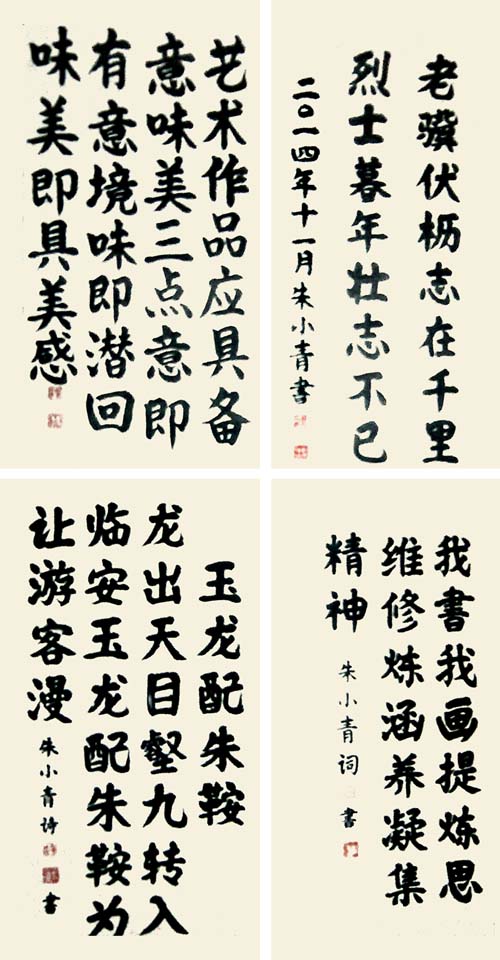 艺术作品应具备
意味美三点意即
有意境味即潜回
味美即具美感
老骥伏枥志在千里
烈士暮年壮志不已
二〇一四年十一月朱小青書
玉龙配朱鞍
龙出天目壑九转入
临安玉龙配朱鞍为
让游客漫
朱小青诗 書
我書我画提炼思
维修炼涵养凝集
精神
朱小青词 書